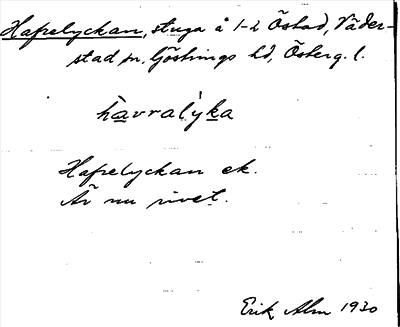 Hafrelyckan, stuga å 1-2 Östad, Väder-
stad sn. Göstrings hd, Österg. l.
hàvralỳka
Hafrelyckan ek.
Är nu rivet.
Erik Alm 1930